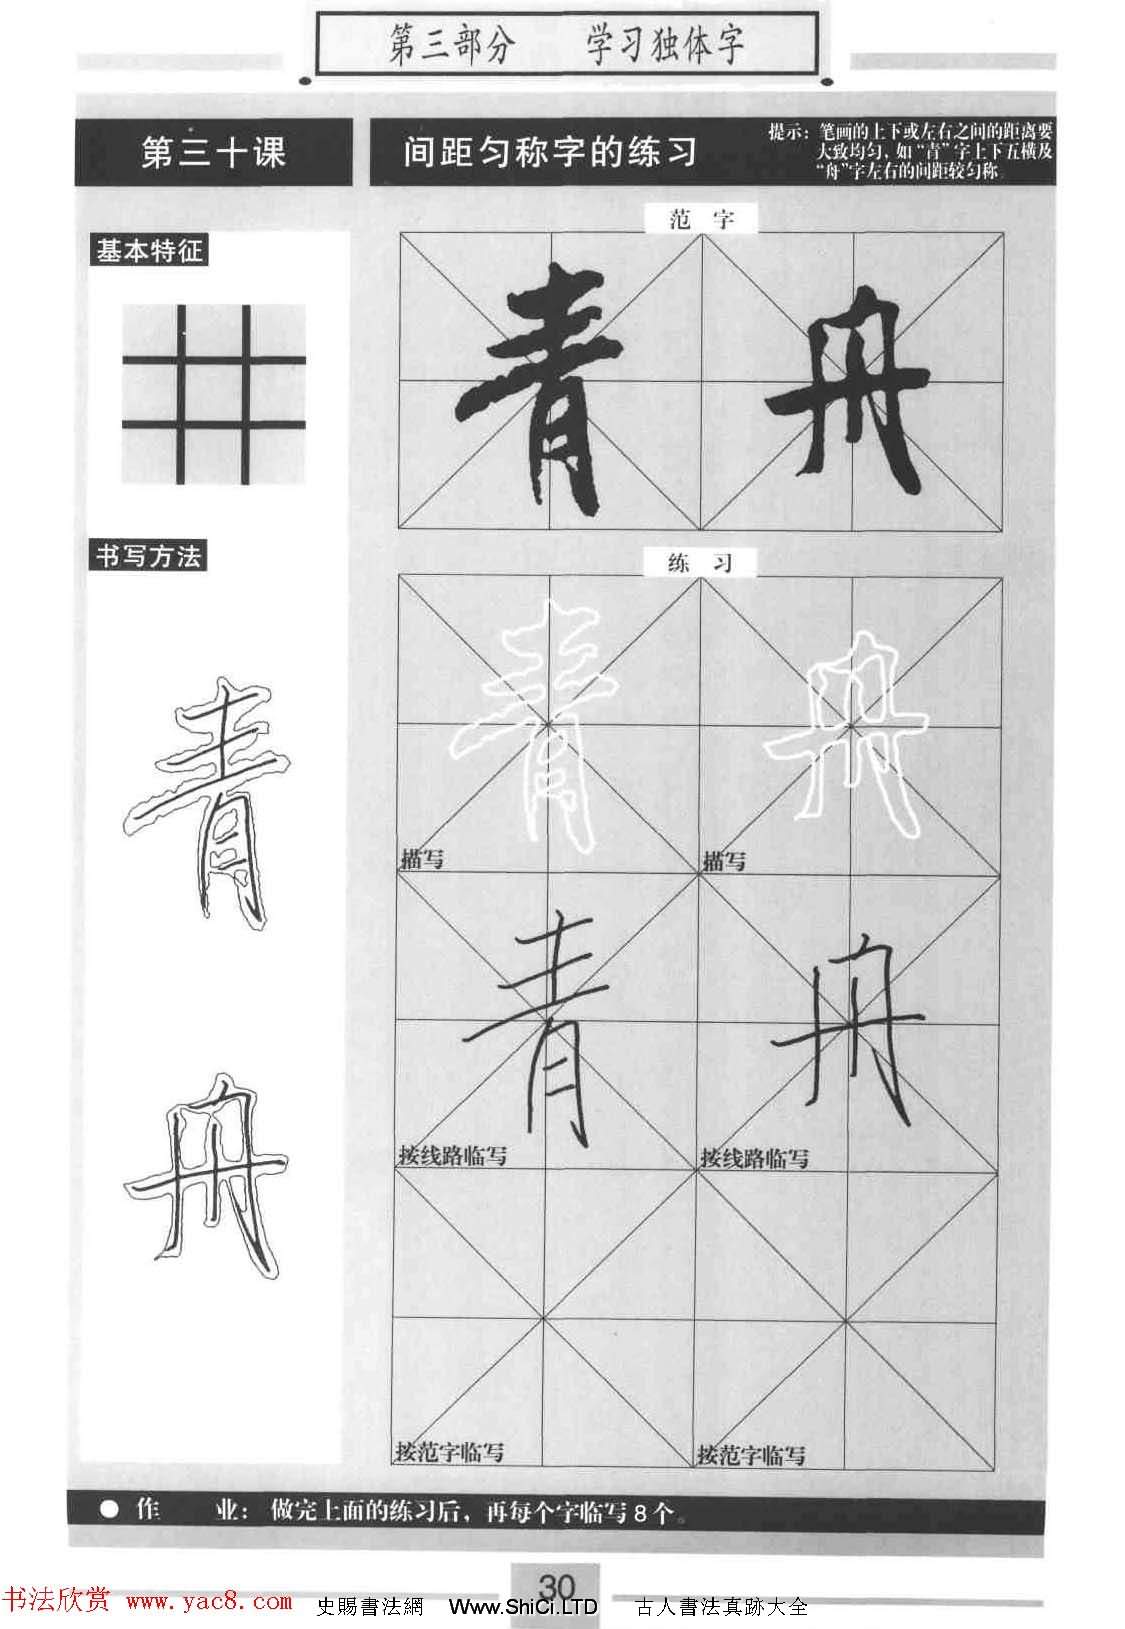 第三部分 学习独体字
第三十课
间距匀称字的练习
提示：笔画的上下或左右之间的距离要
大致均匀，如“青”字上下五横及
“舟”字左右的间距较匀称。
基本特征
范 字
青 舟
书写方法
青
舟
练 习
青 舟
描写 描写
青 舟
按线路临写 按线路临写
按范字临写 按范字临写
● 作 业：做完上面的练习后，再每个字临写8个。
30
书法欣赏 www.yac8.com 史賜書法網 Www.ShiCi.LTD 古人書法真跡大全